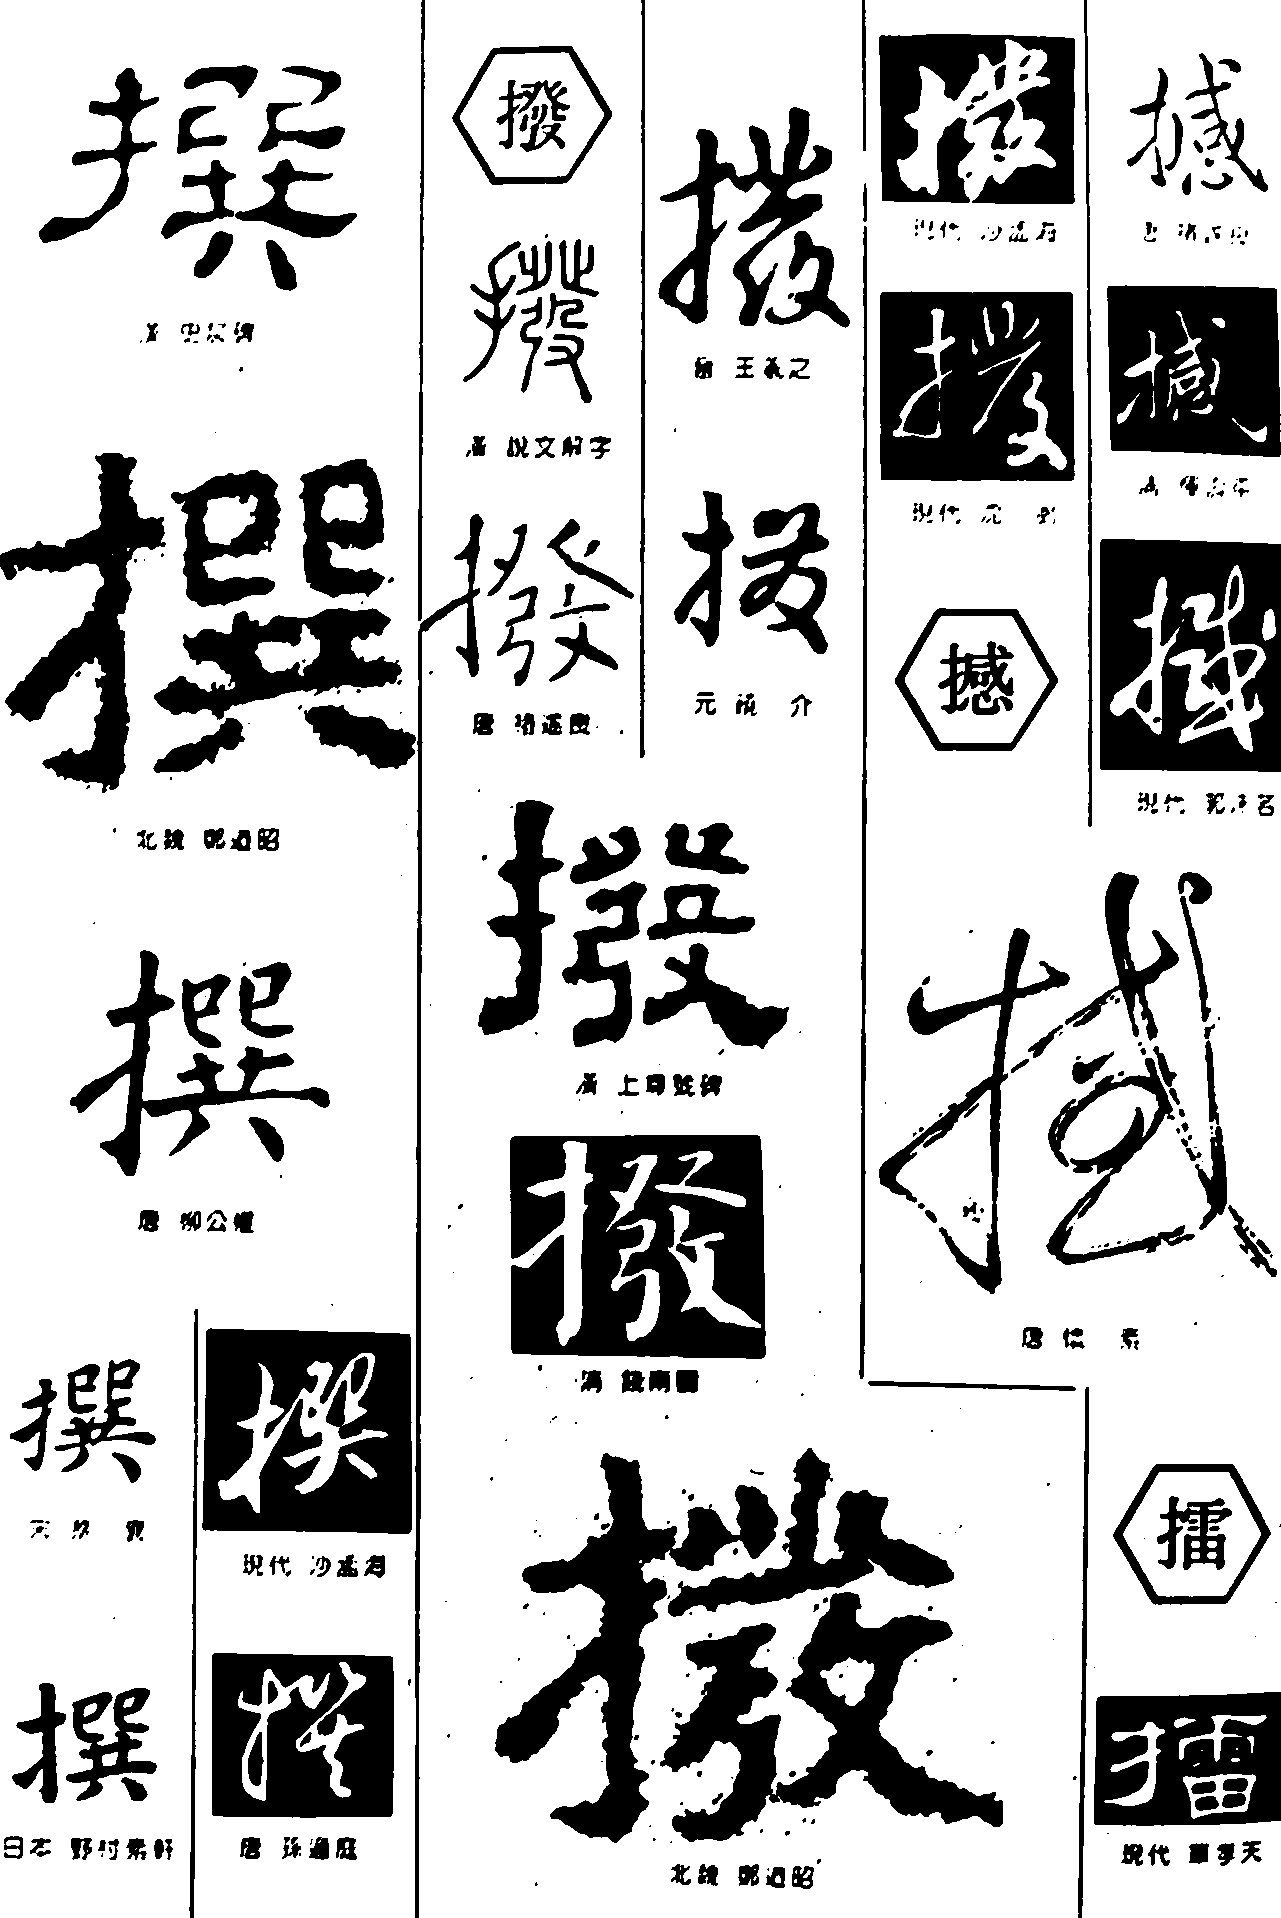 撰
漢 史晨碑
撰
北魏 鄭道昭
撰
唐 柳公權
撰
撰
現代 沙孟海
撰
日本 野村素軒
撰
唐 孫過庭
撥
撥
漢 說文解字
撥
唐 褚遂良
撥
晉 王羲之
撥
元
撥
漢 上尊號碑
撥
清 錢南園
撥
北魏 鄭道昭
撥
現代 沙孟海
撥
現代 沈
撼
撼
唐 褚遂良
撼
清
撼
現代
撼
唐 懷素
擂
擂
現代